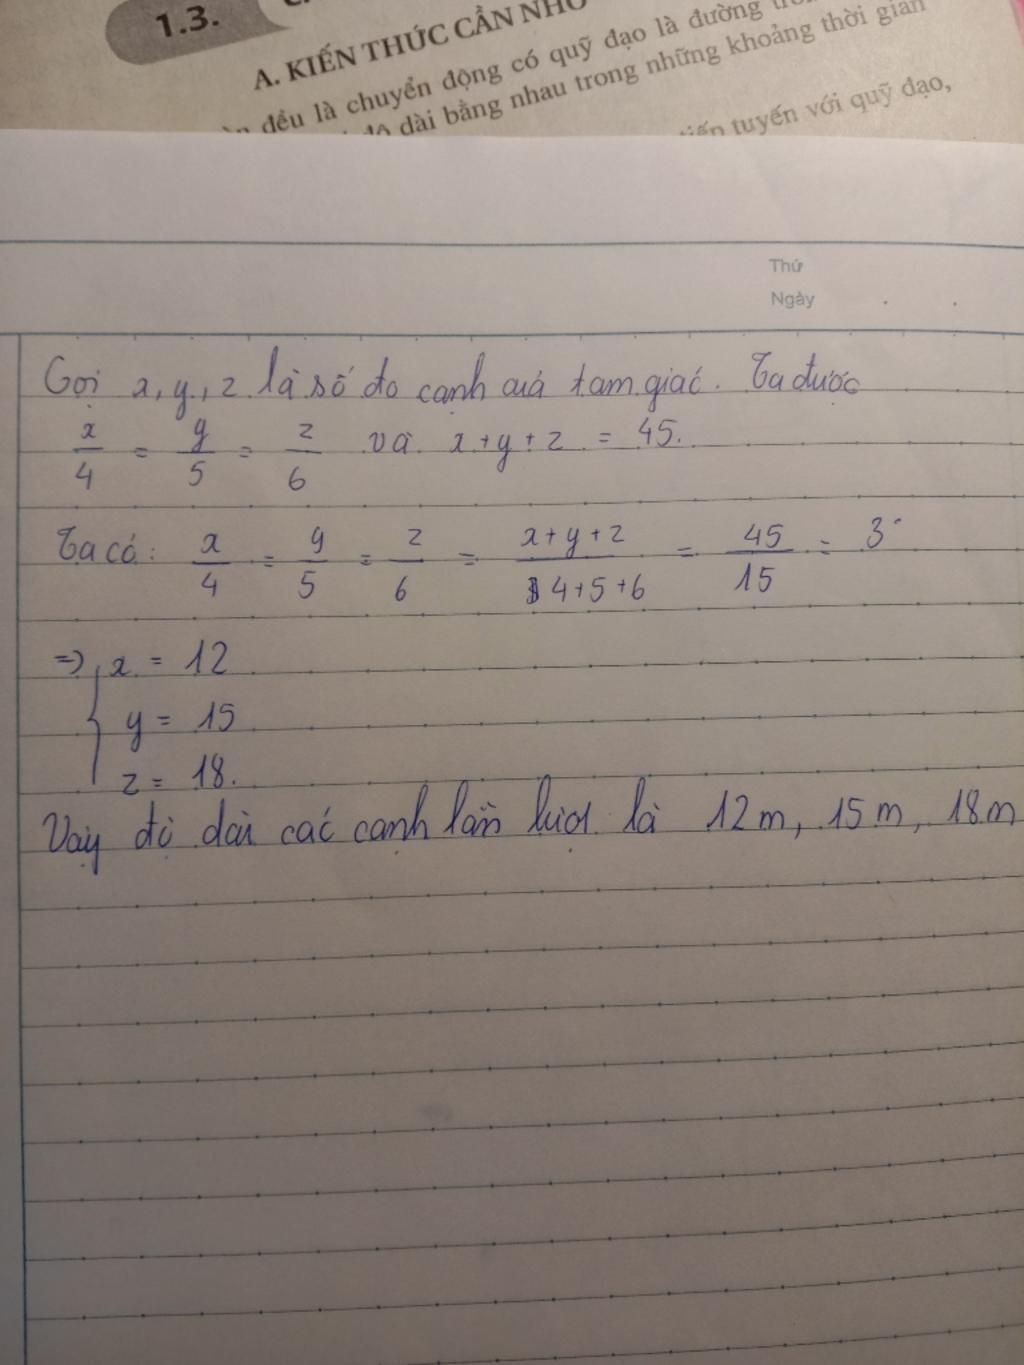 1.3.
A. KIẾN THỨC CẦN NHỚ
đều là chuyển động có quỹ đạo là đường
độ dài bằng nhau trong những khoảng thời gian
tiếp tuyến với quỹ đạo,
Thứ
Ngày
Gọi x, y, z là số đo cạnh của tam giác. Ta được
x/4 = y/5 = z/6 và x+y+z = 45.
Ta có: x/4 = y/5 = z/6 = x+y+z/4+5+6 = 45/15 = 3
=> { x = 12
y = 15
z = 18.
Vậy độ dài các cạnh lần lượt là 12m, 15m, 18m